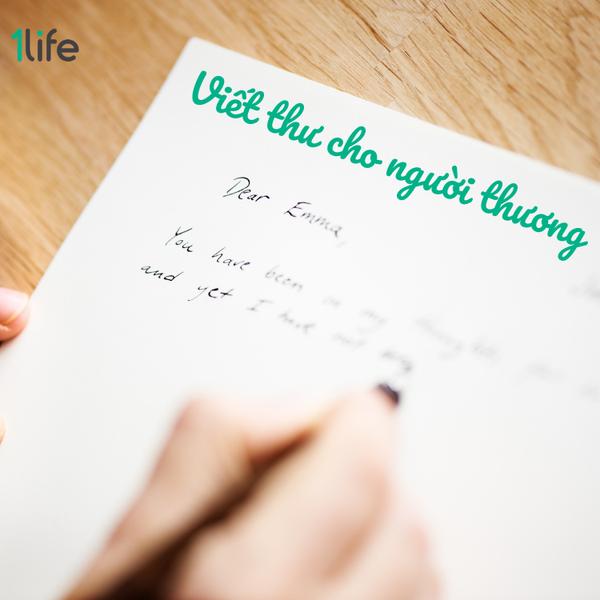 1life
Viết thư cho người thương
Dear Emma,
You have been in my thoughts
and yet I have not